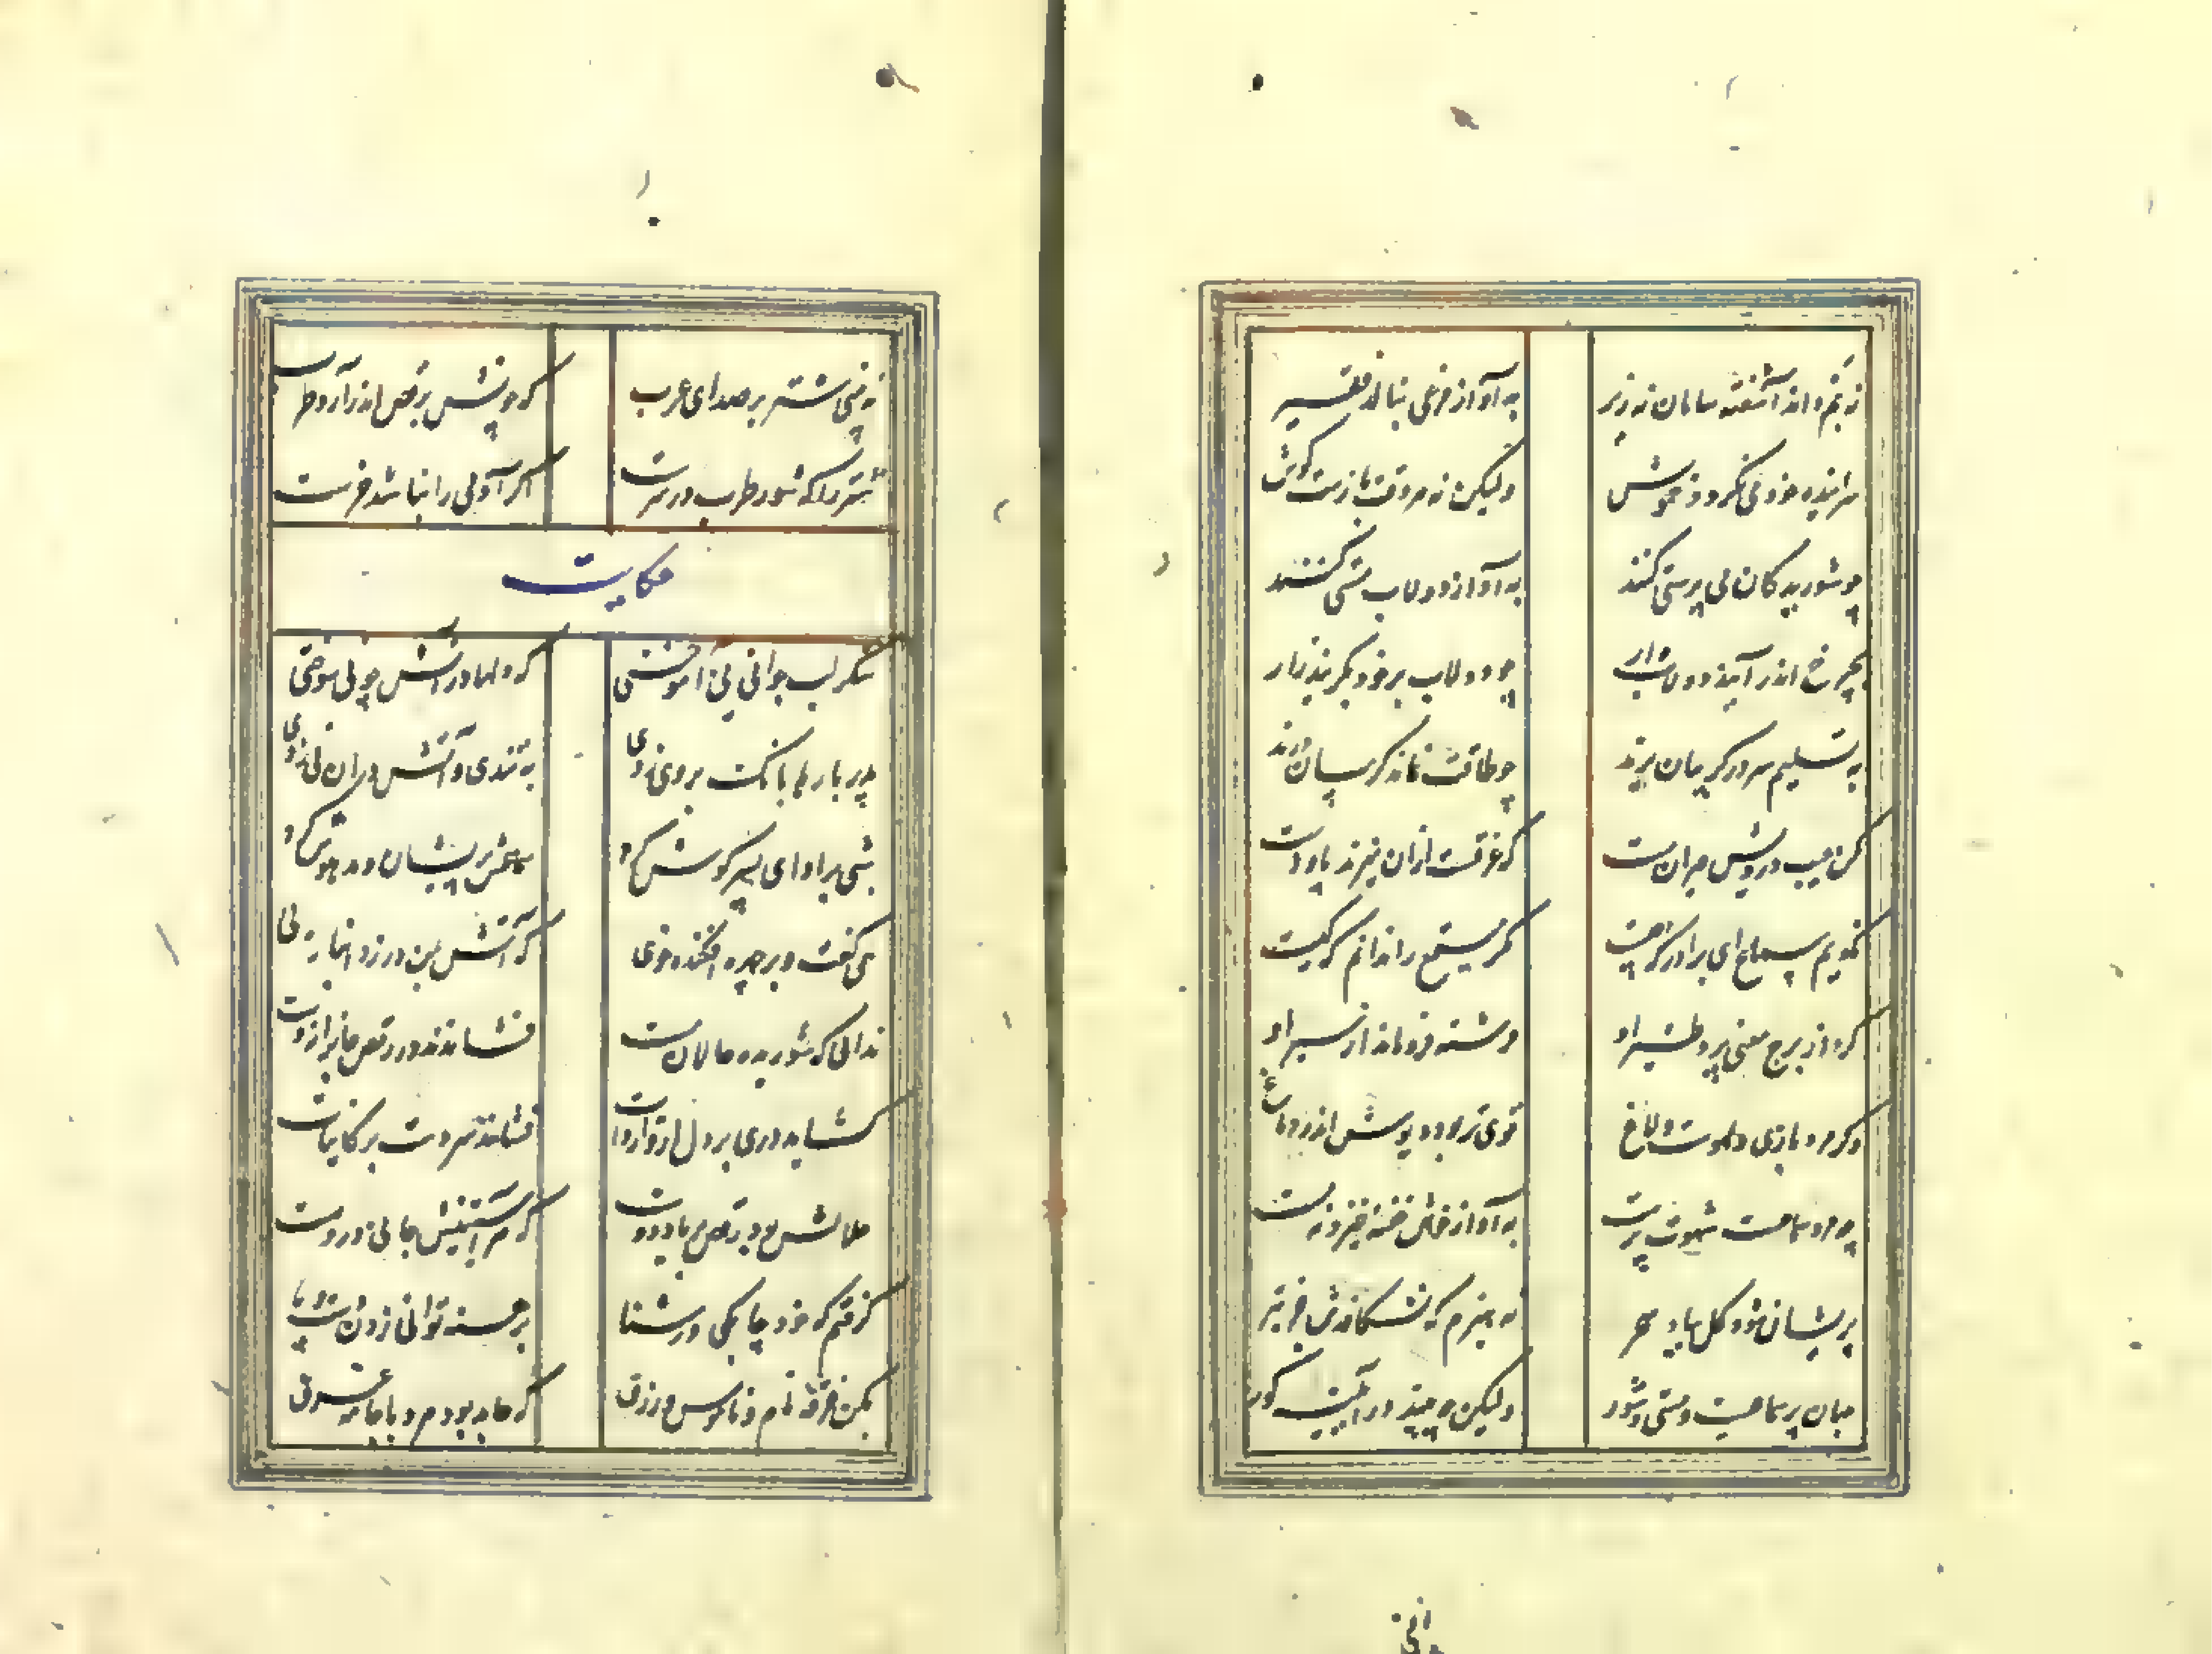 نه بم داند آشفته سامان نه زیر به آواز مرغی بنالد فقیر
سراینده خود می نگردد خموش ولیکن نه هر وقت بازست گوش
چو شوریدگان می پرستی کنند به آواز دولاب مستی کنند
بچرخ اندر آیند دولاب وار چو دولاب بر خود بگریند زار
به تسلیم سر در گریبان برند چو طاقت نماند گریبان درند
مکن عیب درویش حیران مست که غرقست ازان میزند پا و دست
نگویم سماع ای برادر که چیست مگر مستمع را ندانم که کیست
گر از برج معنی پرد طیر او فرشته فروماند از سیر او
وگر مرد بازی و لهوست و لاغ قوی تر بود دیوش اندر دماغ
چه مرد سماعست شهوت پرست به آواز خوش خفته خیزد نه مست
پریشان شود گل بباد سحر نه هیزم که نشکافدش جز تبر
جهان پر سماعست و مستی و شور ولیکن چه بیند در آیینه کور
نه بینی شتر بر صدای عرب که چونش برقص اندر آرد طرب
شتر را که شور طرب در سرست اگر آدمی را نباشد خرست
حکایت
شکر لب جوانی نی آموختی که دلها در آتش چو نی سوختی
پدر بارها بانگ بر وی زدی به تندی و آتش دران نی زدی
شبی بر ادای پسر گوش کرد سماعش پریشان و مدهوش کرد
همی گفت و بر چهره افکنده خوی که آتش بمن در زد این بار نی
ندانی که شوریده حالان مست فشانند در رقص چرا دست
گشاید دری بر دل از واردات فشاند سر و دست بر کاینات
حلالش بود رقص بر یاد دوست که هر آستینش جانی دروست
گرفتم که خود چابکی در شنا برهنه توانی زدن دست و پا
بکن خرقه نام و ناموس و زرق که عاجز بود مرد با جامه غرق